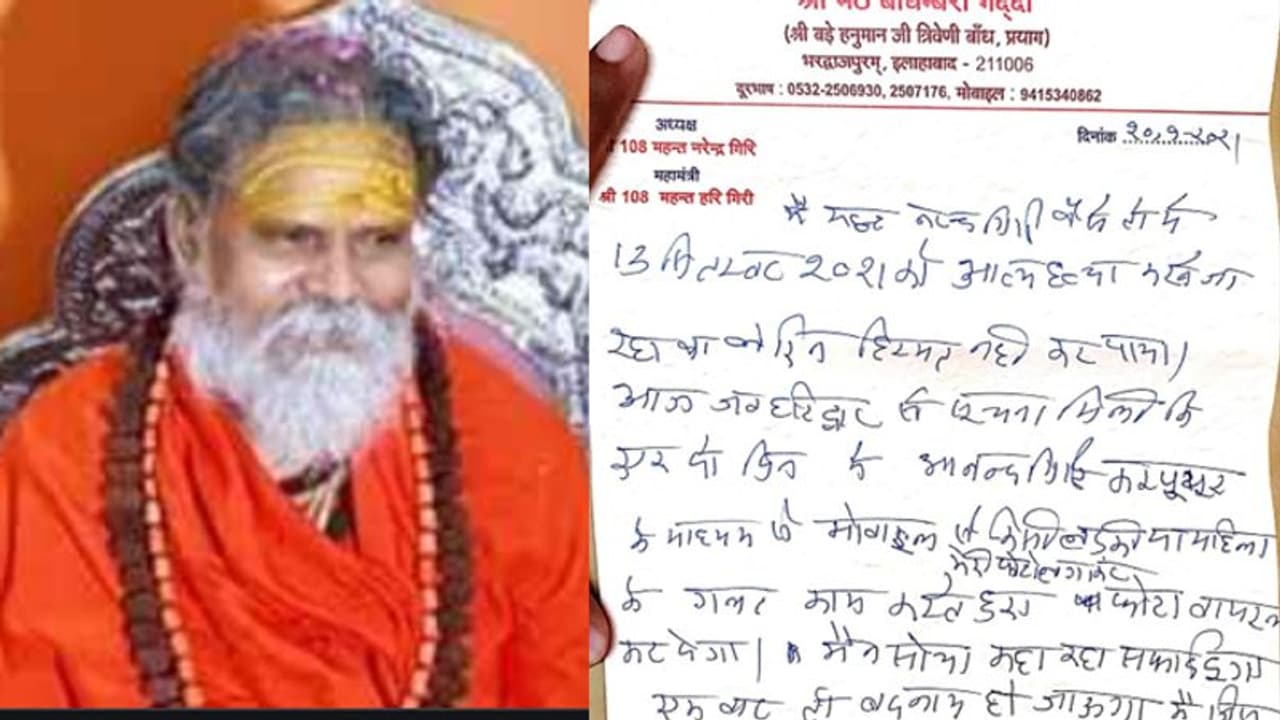 श्री मठ बाघम्बरी गद्दी
(श्री बड़े हनुमान जी त्रिवेणी बाँध, प्रयाग)
भरद्वाजपुरम्, इलाहाबाद - 211006
दूरभाष : 0532-2506930, 2507176, मोबाइल : 9415340862
अध्यक्ष
108 महन्त नरेन्द्र गिरि
दिनांक २०.९.२०२१
महामंत्री
श्री 108 महन्त हरि गिरी
मै महन्त नरेन्द्र गिरि वैसे तो मै
13 सितम्बर २०२१ को आत्महत्या करने जा
रहा था लेकिन हिम्मत नही कर पाया।
आज जब हरिद्वार से सूचना मिली कि
एक दो दिन मे आनन्द गिरि कम्प्यूटर
के माध्यम से मोबाइल से किसी लडकी या महिला
मेरी फोटो लगाकर
के गलत काम करते हुए फोटो वायरल
कर देगा। मैने सोचा कहा कहा सफाई दूंगा
एक बार तो बदनाम हो जाऊगा मै जिस